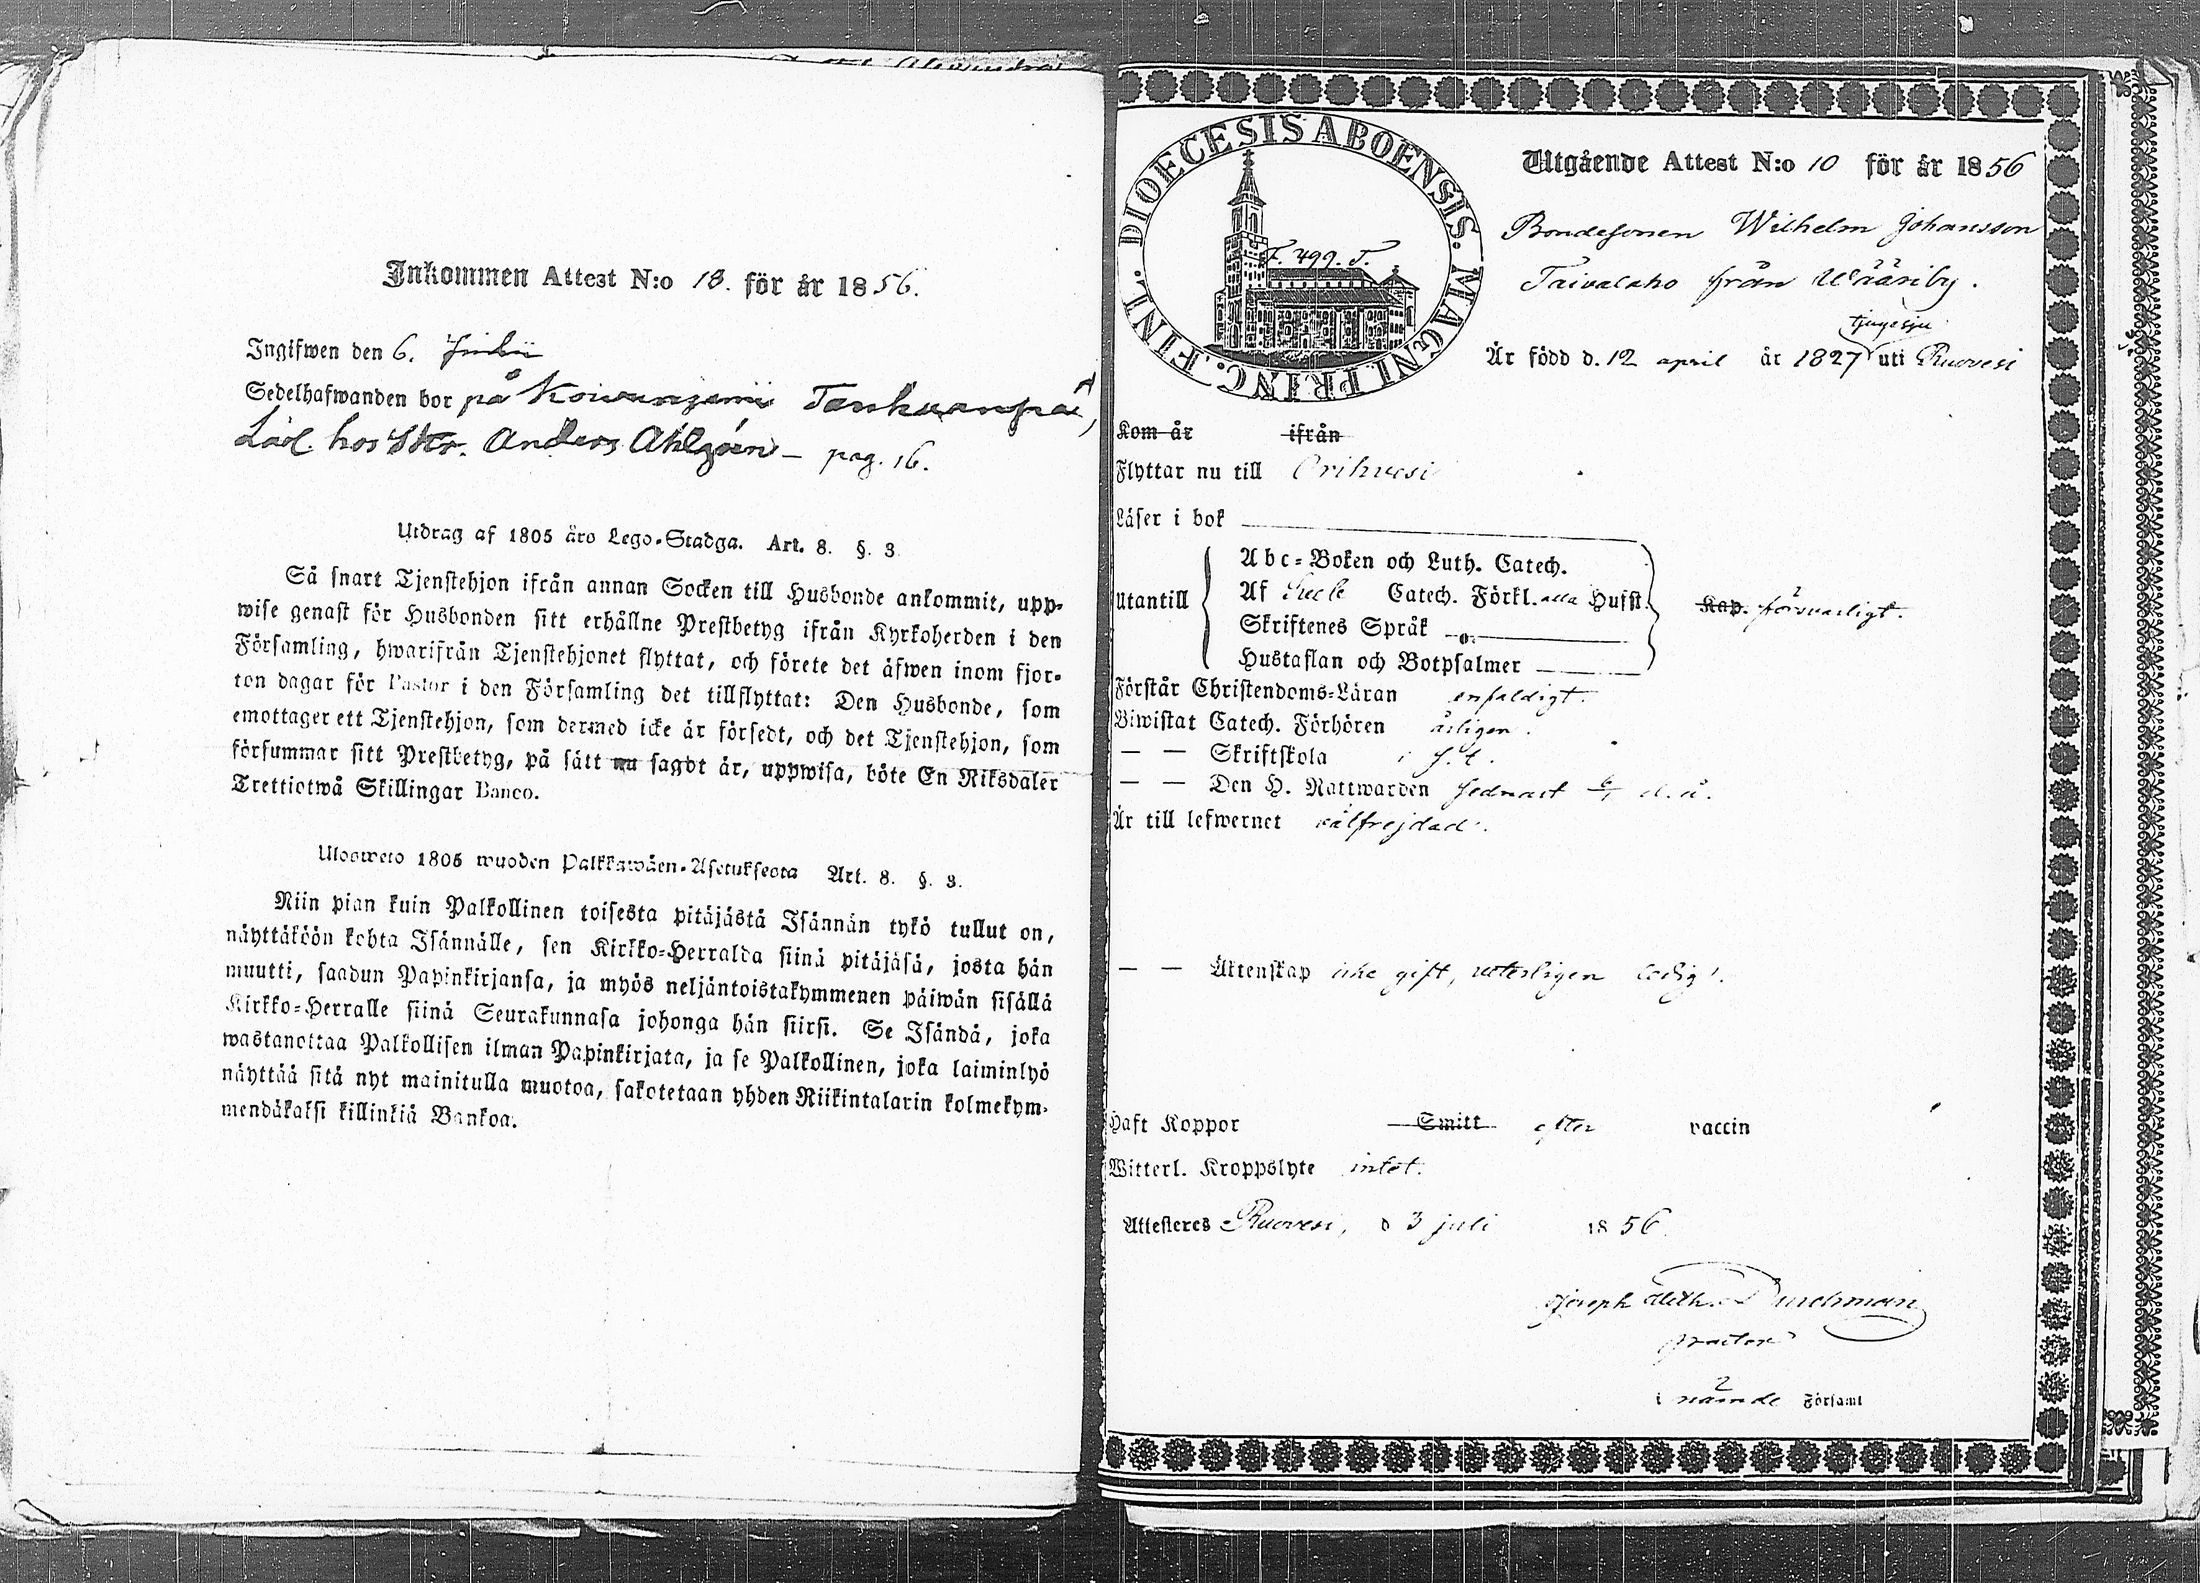 Inkommen Attest N:o 18. för år 1856.
Ingifwen den 6.
Sedelhafwanden bor på
hos Anders Ahlgren – pag. 16.
Utdrag af 1805 års Lego-Stadga. Art. 8. §. 3
Så snart Tjenstehjon ifrån annan Socken till Husbonde ankommit, upp-
wise genast för Husbonden sitt erhållne Prestbetyg ifrån Kyrkoherden i den
Församling, hwarifrån Tjenstehjonet flyttat, och förete det äfwen inom fjor-
ton dagar för Pastor i den Församling det tillflyttat: Den Husbonde, som
emottager ett Tjenstehjon, som dermed icke är försedt, och det Tjenstehjon, som
försummar sitt Prestbetyg, på sätt nu sagdt är, uppwisa, böte En Riksdaler
Trettiotwå Skillingar Banco.
Ulosweto 1805 wuoden Palkkawäen-Asetuksesta Art. 8. §. 3.
Niin pian kuin Palkollinen toisesta pitäjästä Isännän tykö tullut on,
näyttäköön kohta Isännälle, sen Kirkko-Herralda siinä pitäjäsä, josta hän
muutti, saadun Papinkirjansa, ja myös neljäntoistakymmenen päiwän sisällä
Kirkko-Herralle siinä Seurakunnasa johonga hän siirsi. Se Isändä, joka
wastanottaa Palkollisen ilman Papinkirjata, ja se Palkollinen, joka laiminlyö
näyttää sitä nyt mainitulla muotoa, sakotetaan yhden Riikintalarin kolmekym-
mendäkaksi killinkiä Bankoa.
DIOECESIS ABOENSIS. MAGNI PRINC. FINL.
F. 499. T.
Utgående Attest N:o 10 för år 1856
Bondesonen Wilhelm Johansson
Taivalaho från Wääriby.
tjugesju
Är född d. 12 april år 1827 uti Ruovesi
Kom år ifrån
Flyttar nu till Orihvesi
Läser i bok
Abc-Boken och Luth. Catech.
Utantill Af Catech. Förkl. alla Husst. Kap. försvarligt.
Skriftenes Språk
Hustaflan och Botpsalmer
Förstår Christendoms-Läran enfaldigt.
Biwistat Catech. Förhören årligen.
— — Skriftskola i s. t.
— — Den H. Nattwarden sednast 6/1 d. å.
Är till lefwernet välfrejdad.
— — Äktenskap icke gift, veterligen ledig.
Haft Koppor Smitt efter vaccin
Witterl. Kroppslyte intet.
Attesteres Ruovesi, d 3 juli 1856.
Joseph Wilh. Durchman
pastor
i nämde Församl